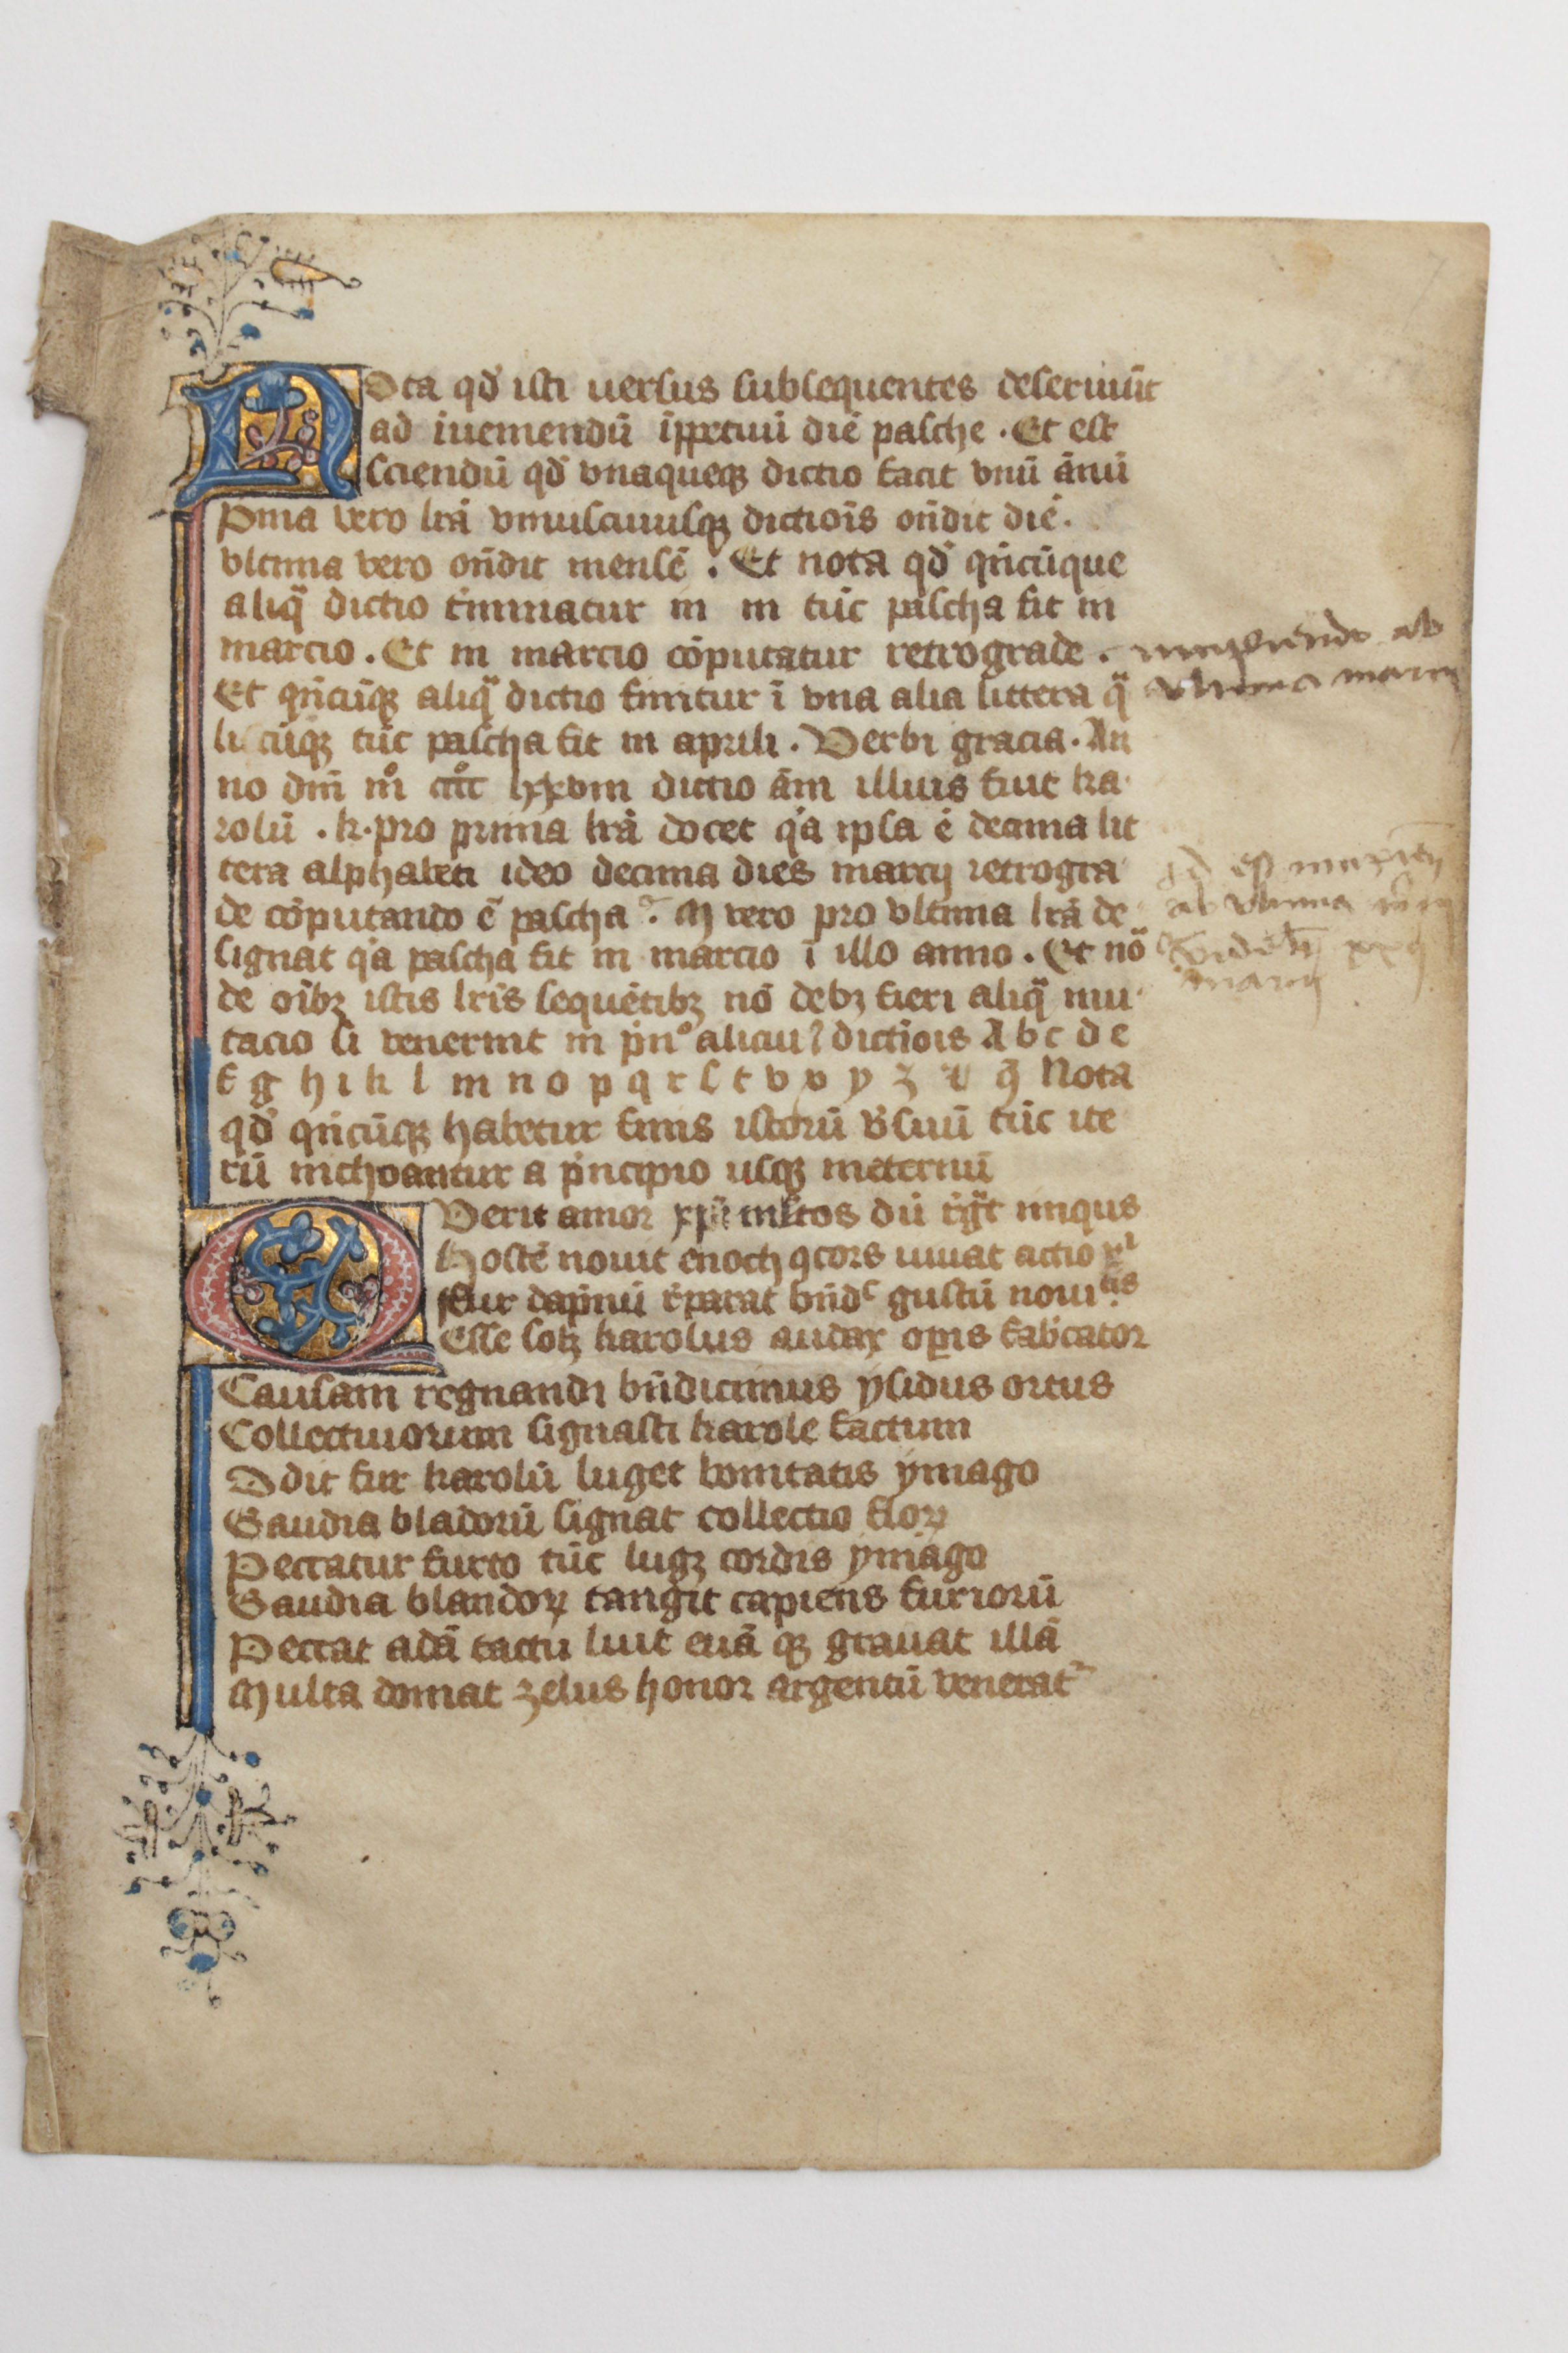 Nota qd isti uersus subsequentes deseruiūt
ad inueniendū īppetuū diē pasche . Et est
sciendū qd vnaqueqꝫ dictio facit vnū ānū
Pma vero lrā vniuscuiusqꝫ dictiōis oñdit diē .
vltima vero oñdit mensē . Et nota qd qñcūque
aliqͣ dictio tīminatur in m tūc pascha fit in
marcio . Et in marcio cōputatur retrograde .
incipiendo ab
vltima marcij
Et qñcūqꝫ aliqͣ dictio finitur ī vna alia littera qͣ
liscūqꝫ tūc pascha fit in aprili . Verbi gracia . An
no dnī mͦ cccͦ lxxviii dictio ām illius fuit ka
rolū . k . pro prima lrā docet qͥa ipsa ē decima lit
tera alphabeti ideo decima dies marcij retrogra
de cōputando ē pascha . M vero pro vltima lrā de
signat qͥa pascha fit in marcio ī illo anno . Et nō
id est incipiend
ab vltima
marcij
de oībꝫ istis lrīs sequētibꝫ nō debꝫ fieri aliqͣ mu
tacio si venerint in pͥnͦ alicuiꝰ dictiōis A b c d e
f g h i k l m n o p q r s t v x y z Nota
qd qñcūqꝫ habetur finis istorū vsuū tūc ite
rū inchoantur a pͥncipio usqꝫ ineternū
Querit amor xpī mltos dū tͥgͣt iniqus
Hostē nouit enoch ꝯcors iuuat actio
Fur dapnū rͥparat bñdͨ gustū nouiͭᵃˢ
Esse solꝫ karolus audax opis fabͥcator
Causam regnandi bñdicimus ysidus ortus
Collectiuorum signasti karole factum
Odit fur karolū luget bonitatis ymago
Gaudia bladorū signat collectio floꝝ
Peccatur furto tūc lugꝫ cordis ymago
Gaudia blandoꝝ tangit capiens furiorū
Peccat adā tactu luit euā qꝫ grauat illā
Multa domat zelus honor argentū veneratᷣ